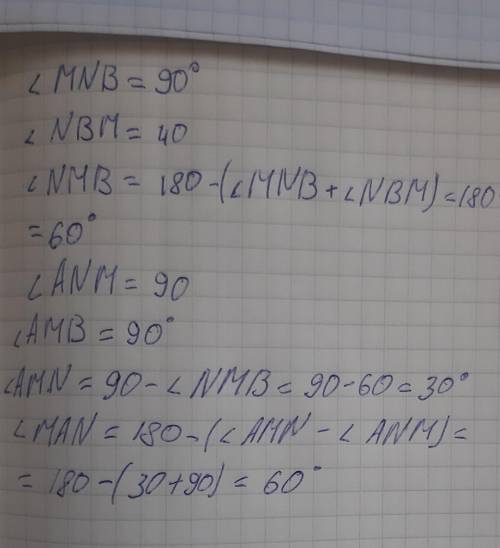 ∠MNB = 90°
∠NBM = 40
∠NMB = 180-(∠MNB+∠NBM)=180
=60°
∠ANM = 90
∠AMB = 90°
∠AMN = 90-∠NMB = 90-60 = 30°
∠MAN = 180-(∠AMN-∠ANM)=
= 180-(30+90) = 60°